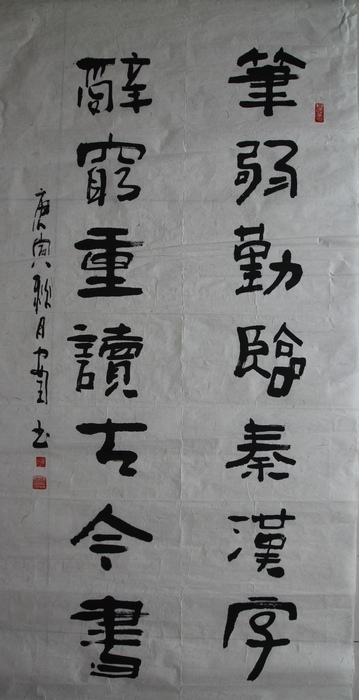 筆弱勤臨秦漢字
辭窮重讀古今書
庚寅秋月